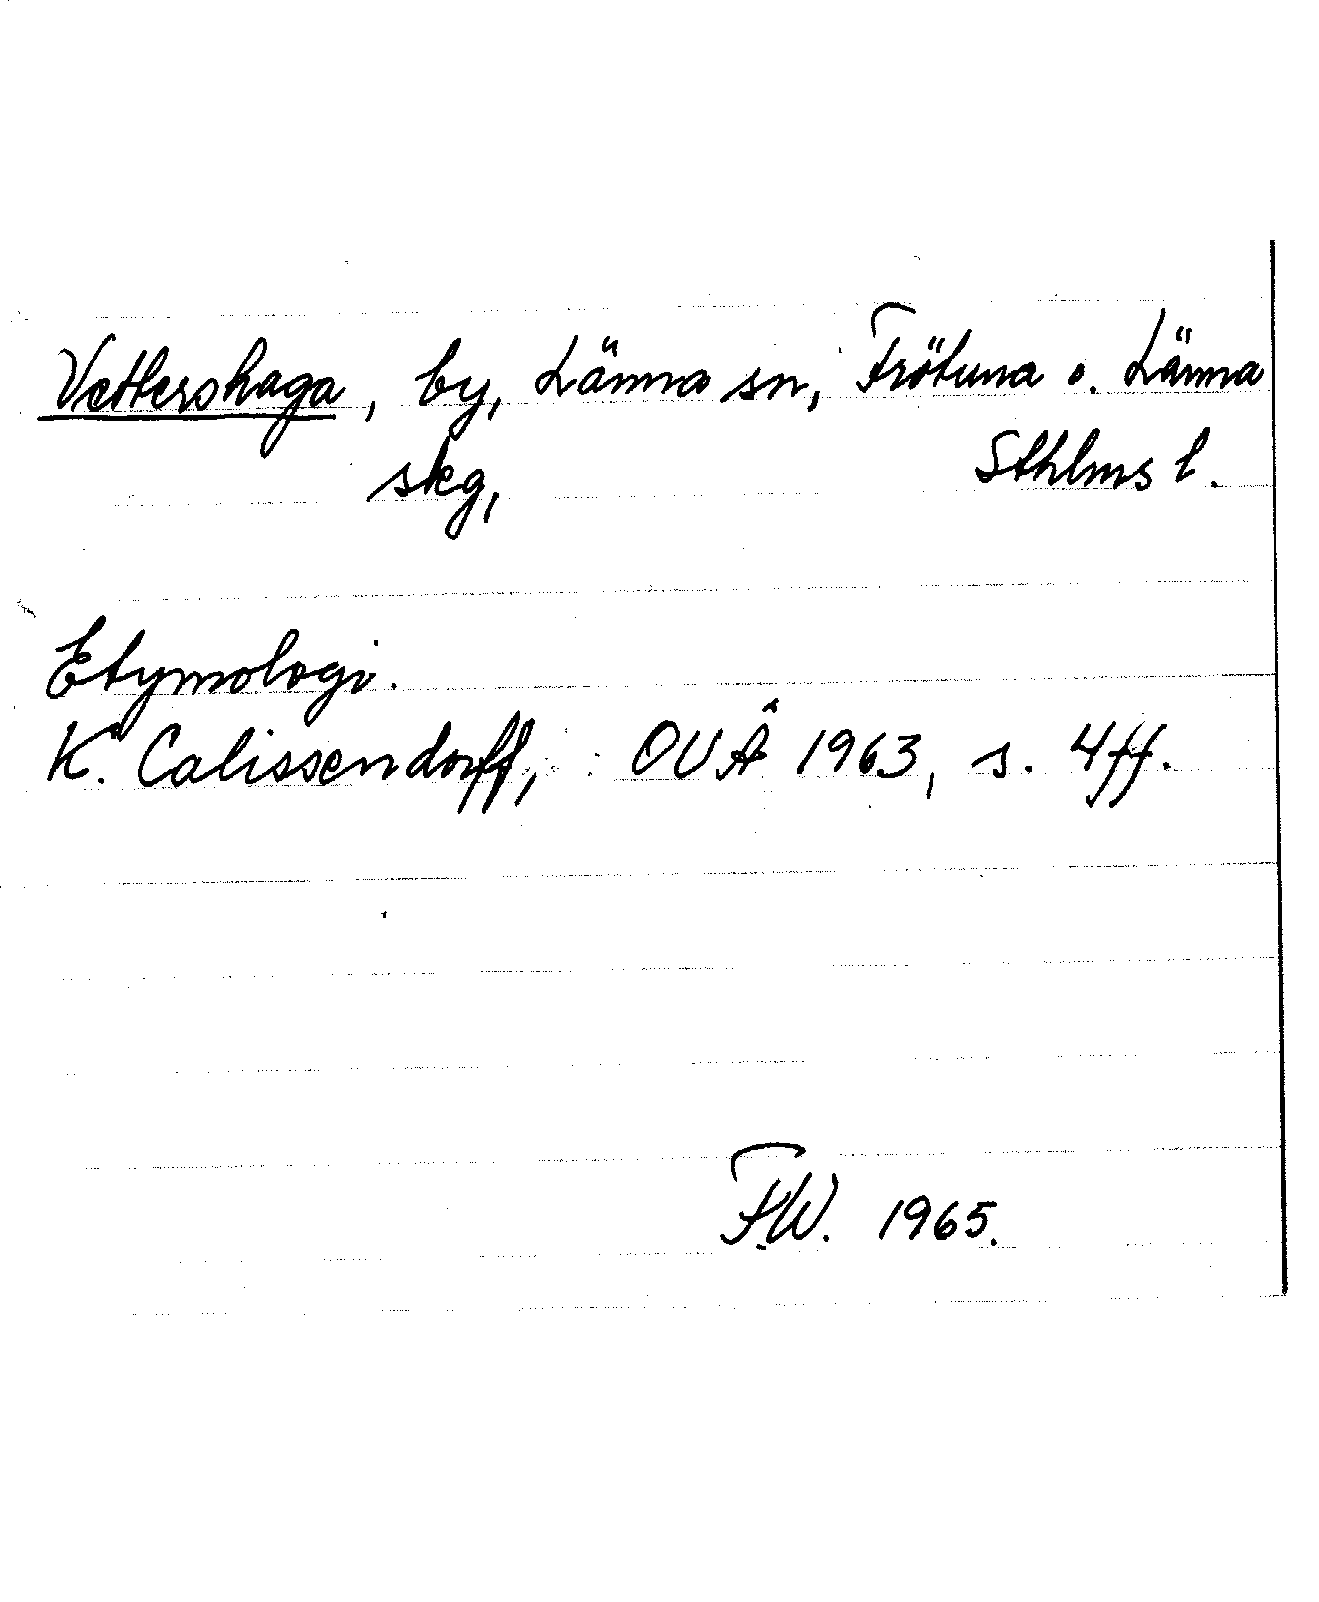 Vettershaga, by, Länna sn, Frötuna o. Länna
skg, Sthlms l.
Etymologi.
K. Calissendorff, OUÅ 1963, s. 4ff.
F.W. 1965.